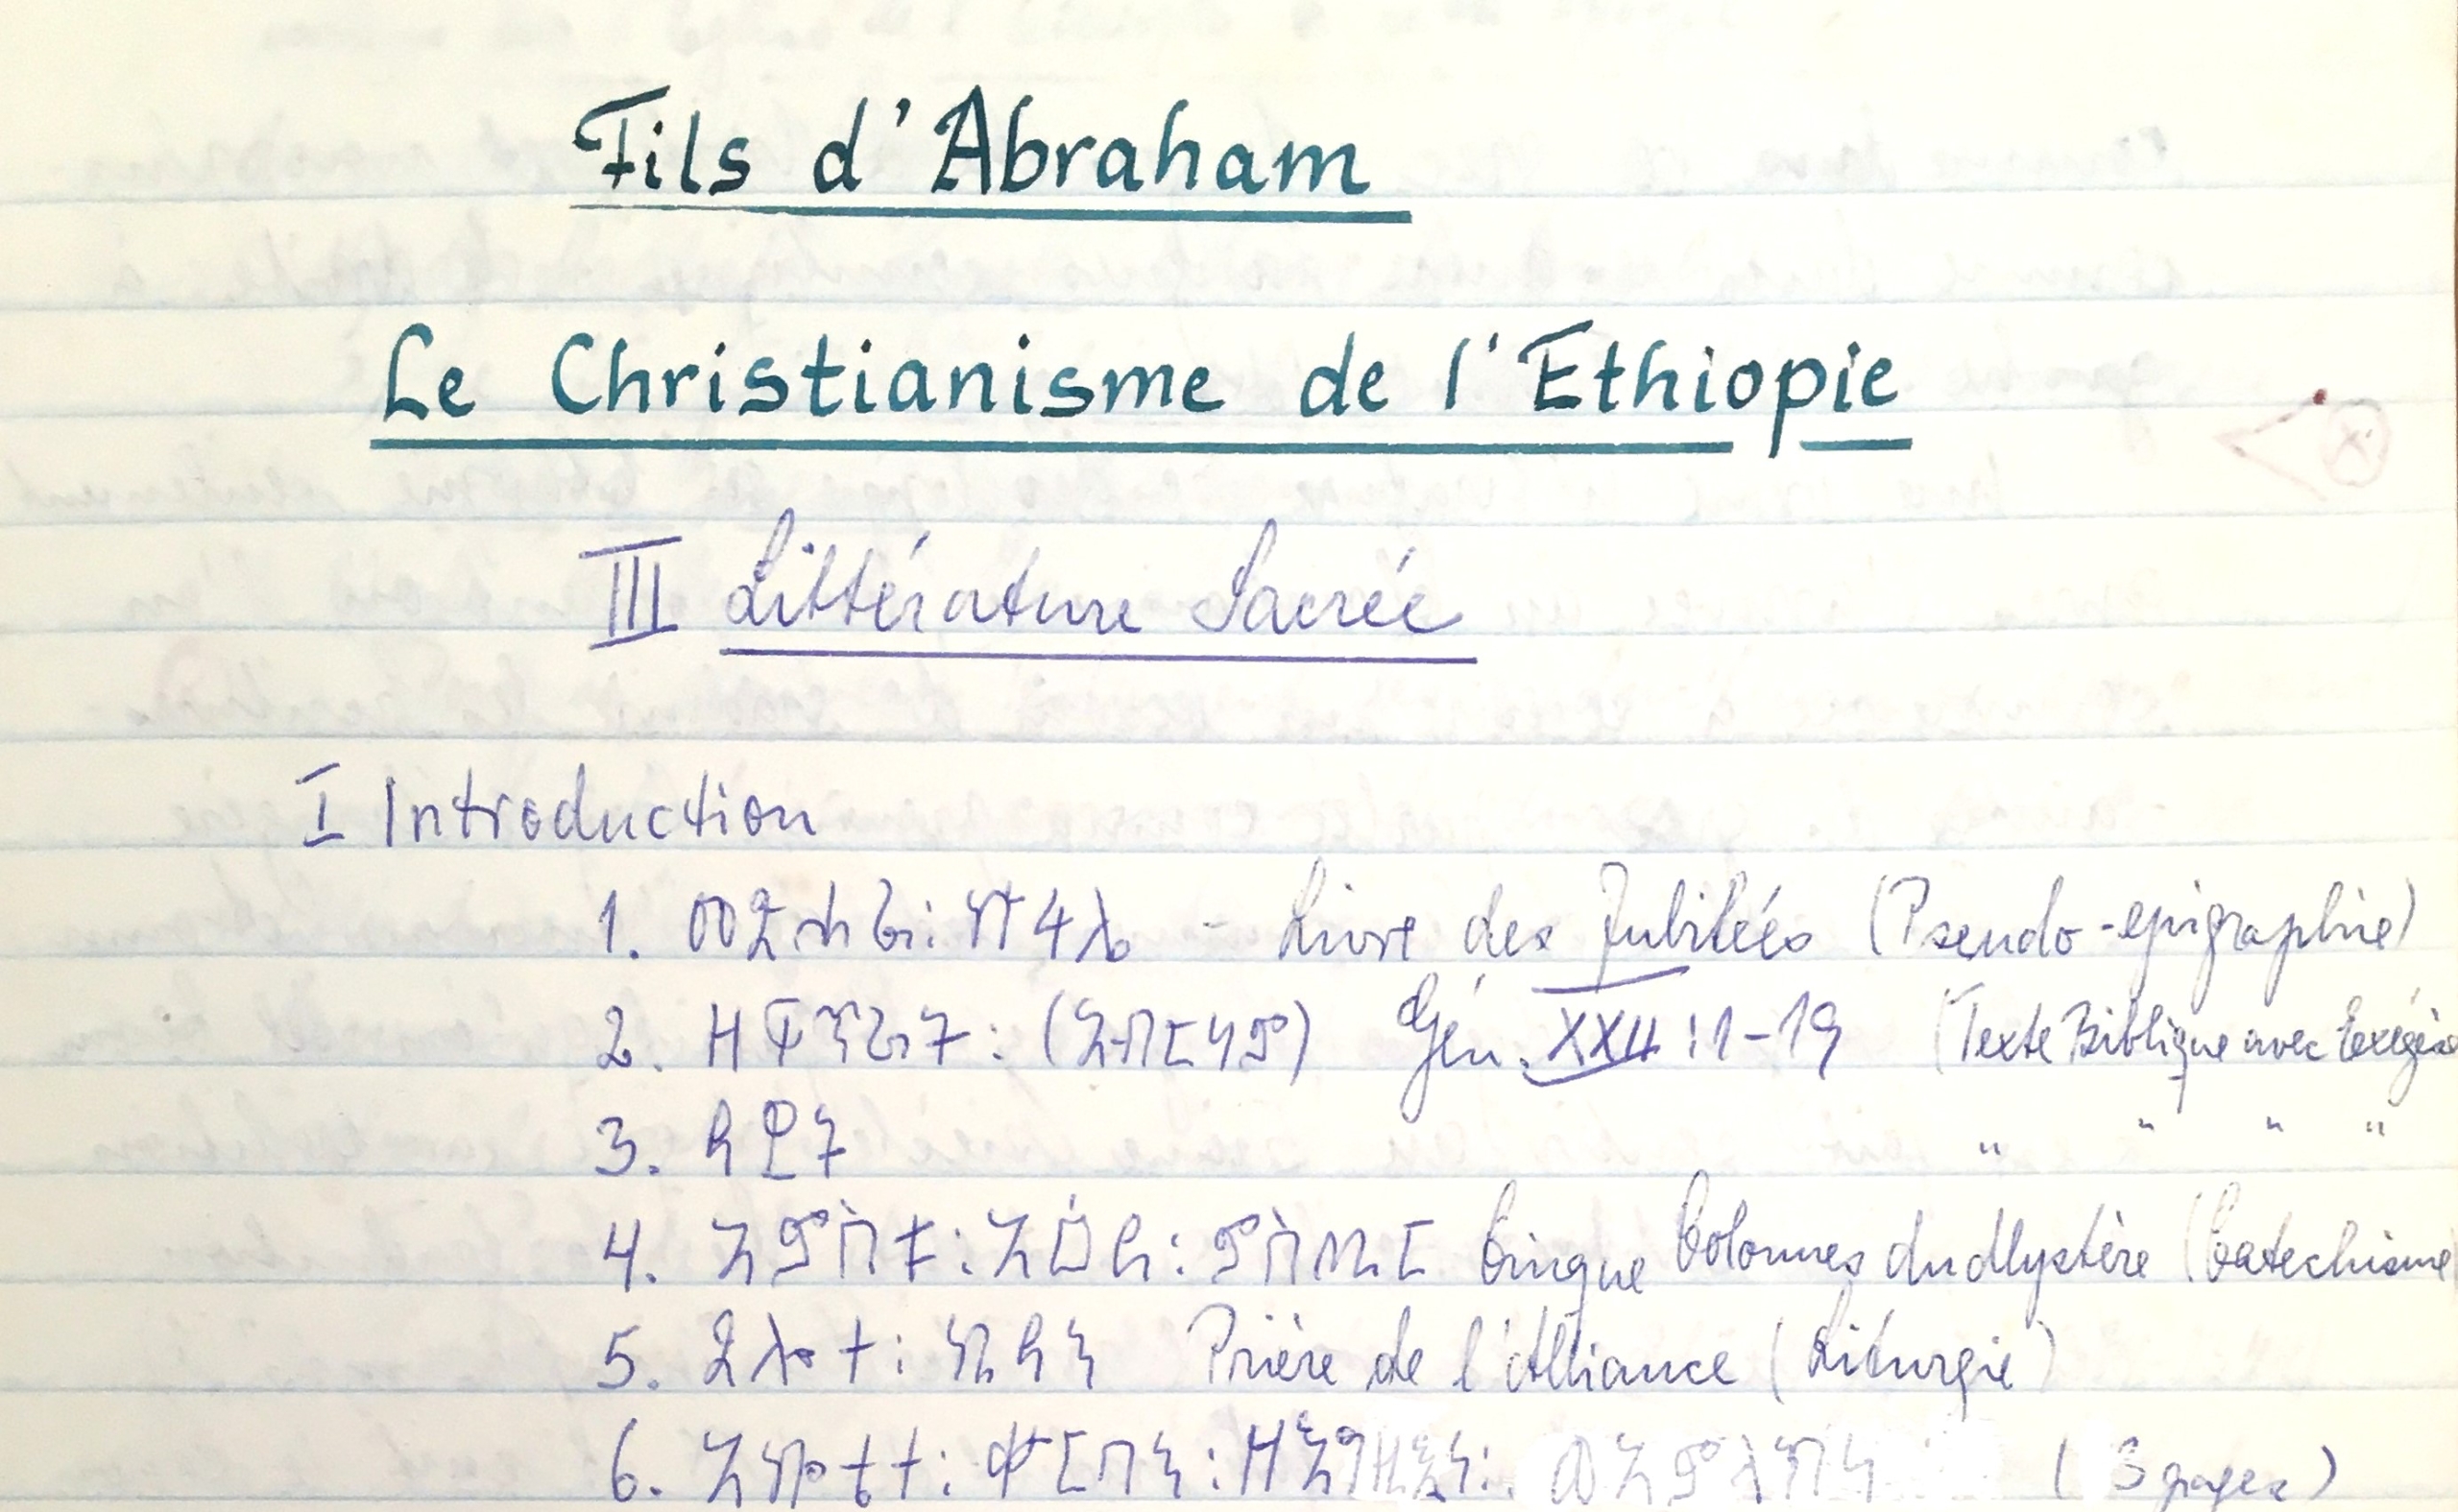 Fils d'Abraham
Le Christianisme de l'Ethiopie
III Littérature Sacrée
I Introduction
1. መጽሐፈ: ኩፋሌ - Livre des Jubilées (Pseudo-epigraphie)
2. (አብርሃም) Gén. XXII : 1-19 (Texte Biblique avec Exégèse
3. " " " "
4. Cinque Colonnes du Mystère (Catechisme
5. ጸሎተ: ኪዳን Prière de l'Alliance (Liturgie)
6. (3 pages)